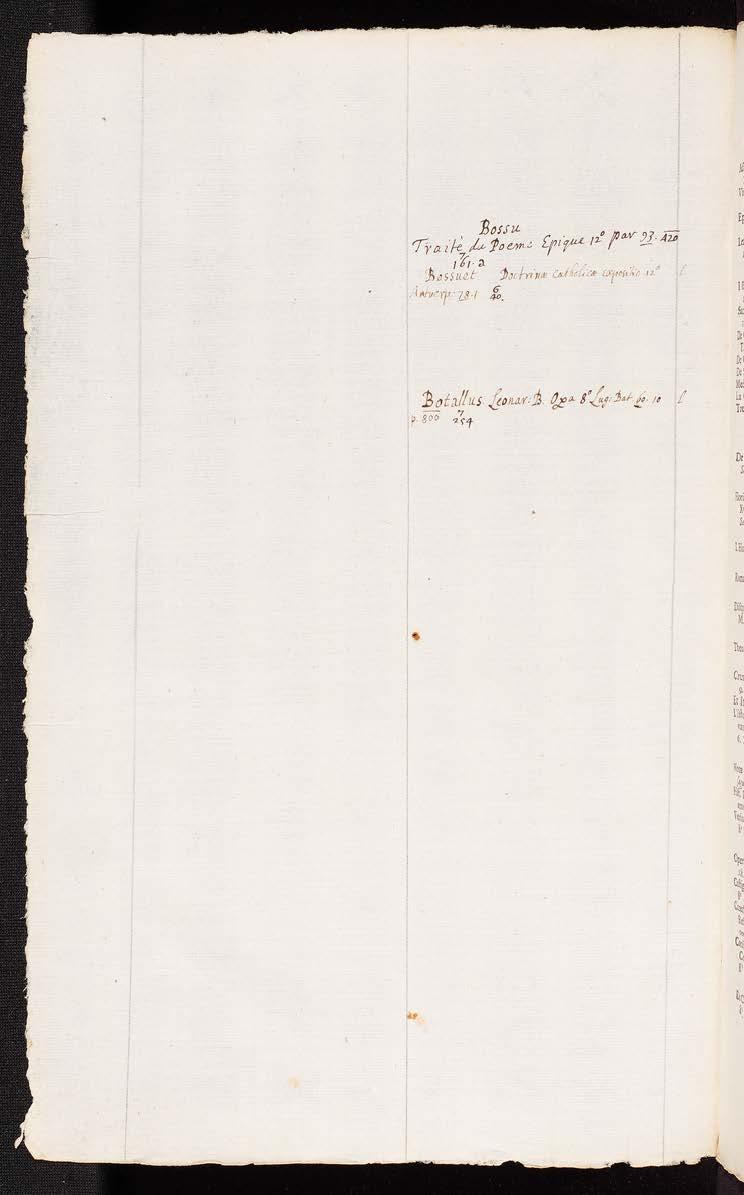 Bossu
Traité du Poeme Epique 12° par 93. 420
7
161. a
Bossuet Doctrinæ Catholicæ expositio 12° l
Antverp. 78. 1 6
40.
Botallus Leonar: B. Opa 8° Lug: Bat. 60. 10 l
p. 800 7
254